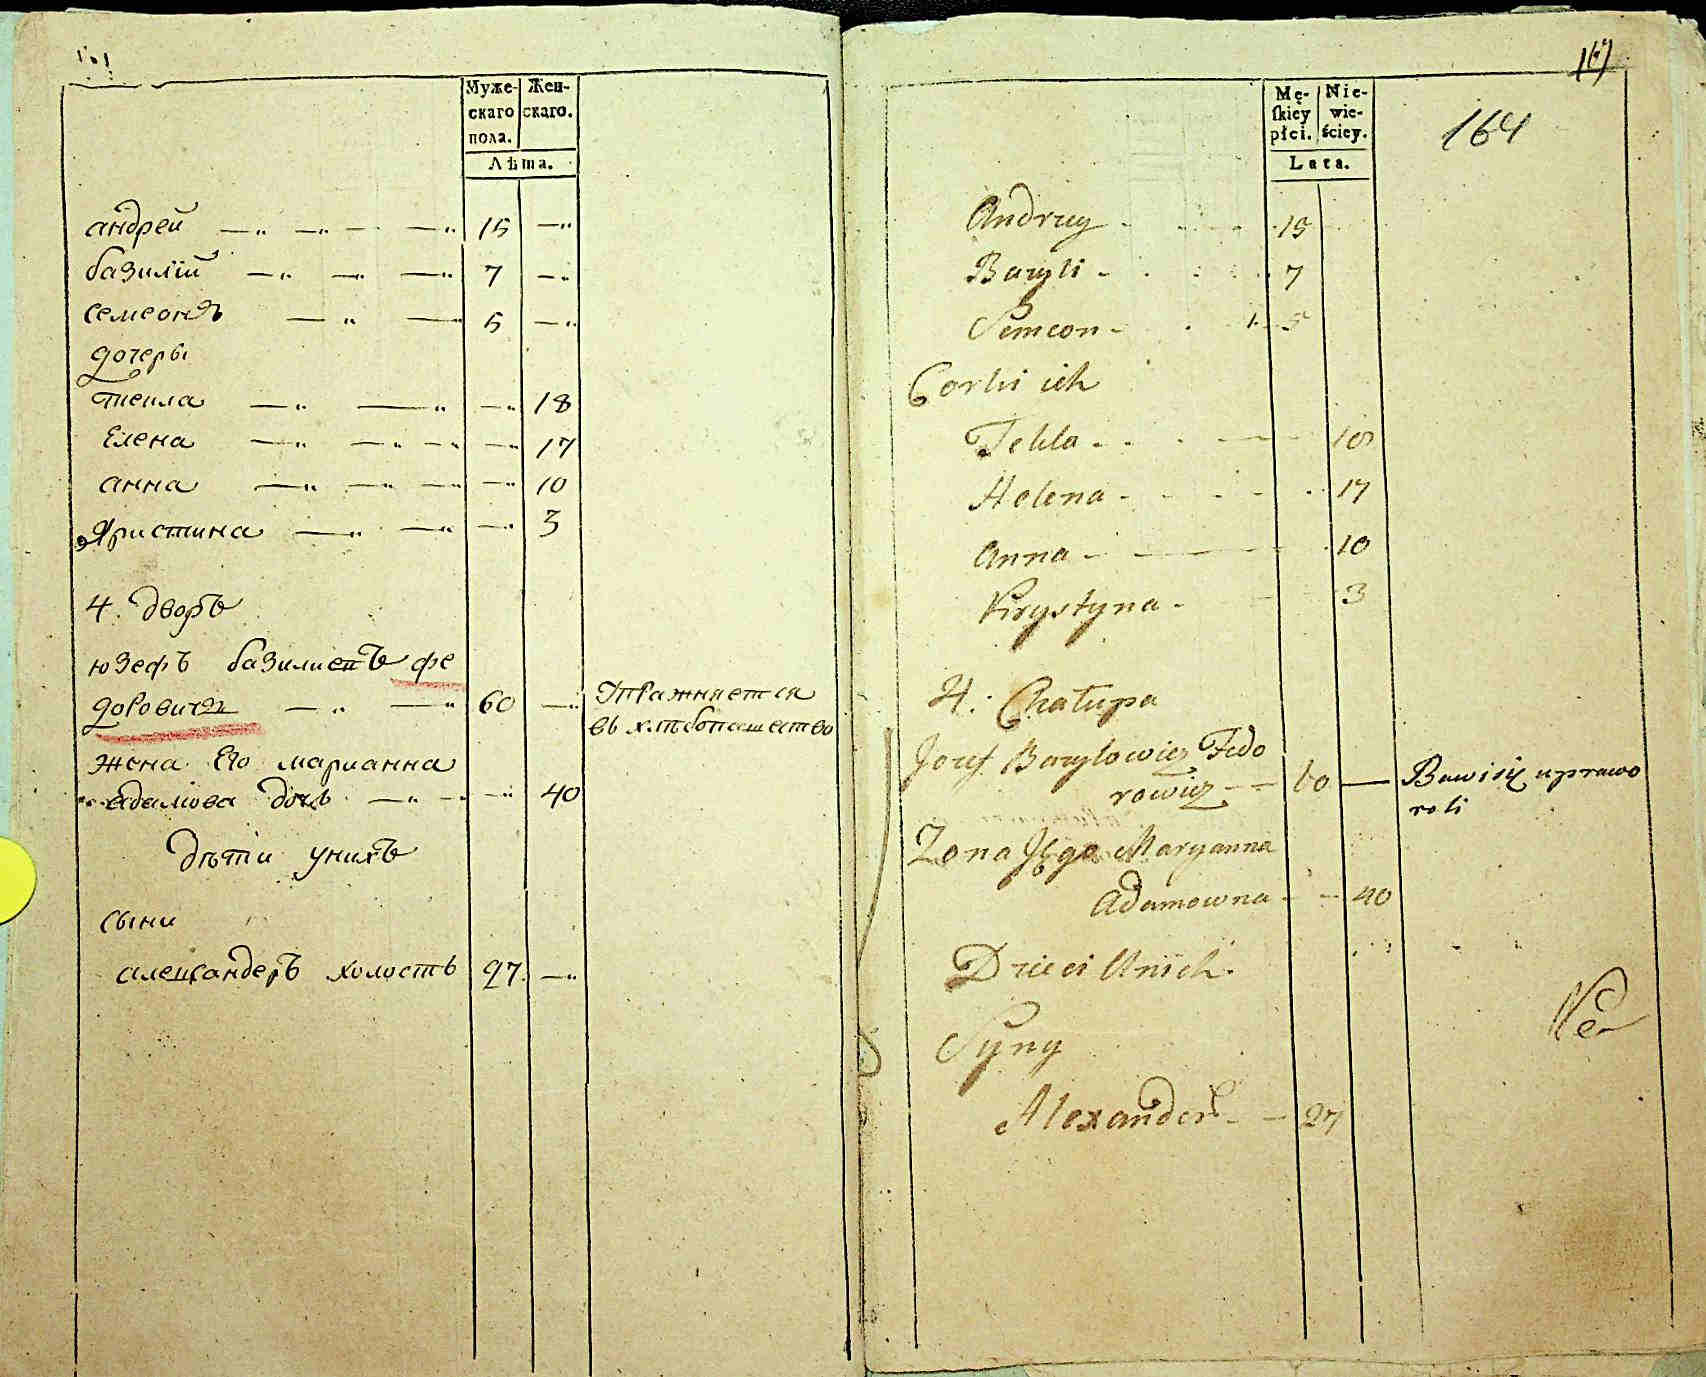 Муже-
скаго
пола.
Жен-
скаго.
Лѣта.
андрей 15
базилій 7
семеонъ 5
дочеры
текла 18
Елена 17
анна 10
христина 3
4. дворъ
юзефъ базилиевъ фе
доровичъ 60 Упражняется
въ хлѣбопашество
жена Его марианна
адамова дочь 40
дѣти унихъ
сыни
александеръ холостъ 27
Mę-
skiey
płci.
Nie-
wie-
ściey.
Lata.
164
Andrzey 15
Bazyli 7
Semeon 5
Corki ich
Tekla 18
Helena 17
Anna 10
Krystyna 3
4. Chałupa
Jozef Bazylowicz Fedo
rowicz 60 Bawi się uprawo
roli
Zona Jego Maryanna
Adamowna 40
Dzieci Unich
Syny
Alexander 27